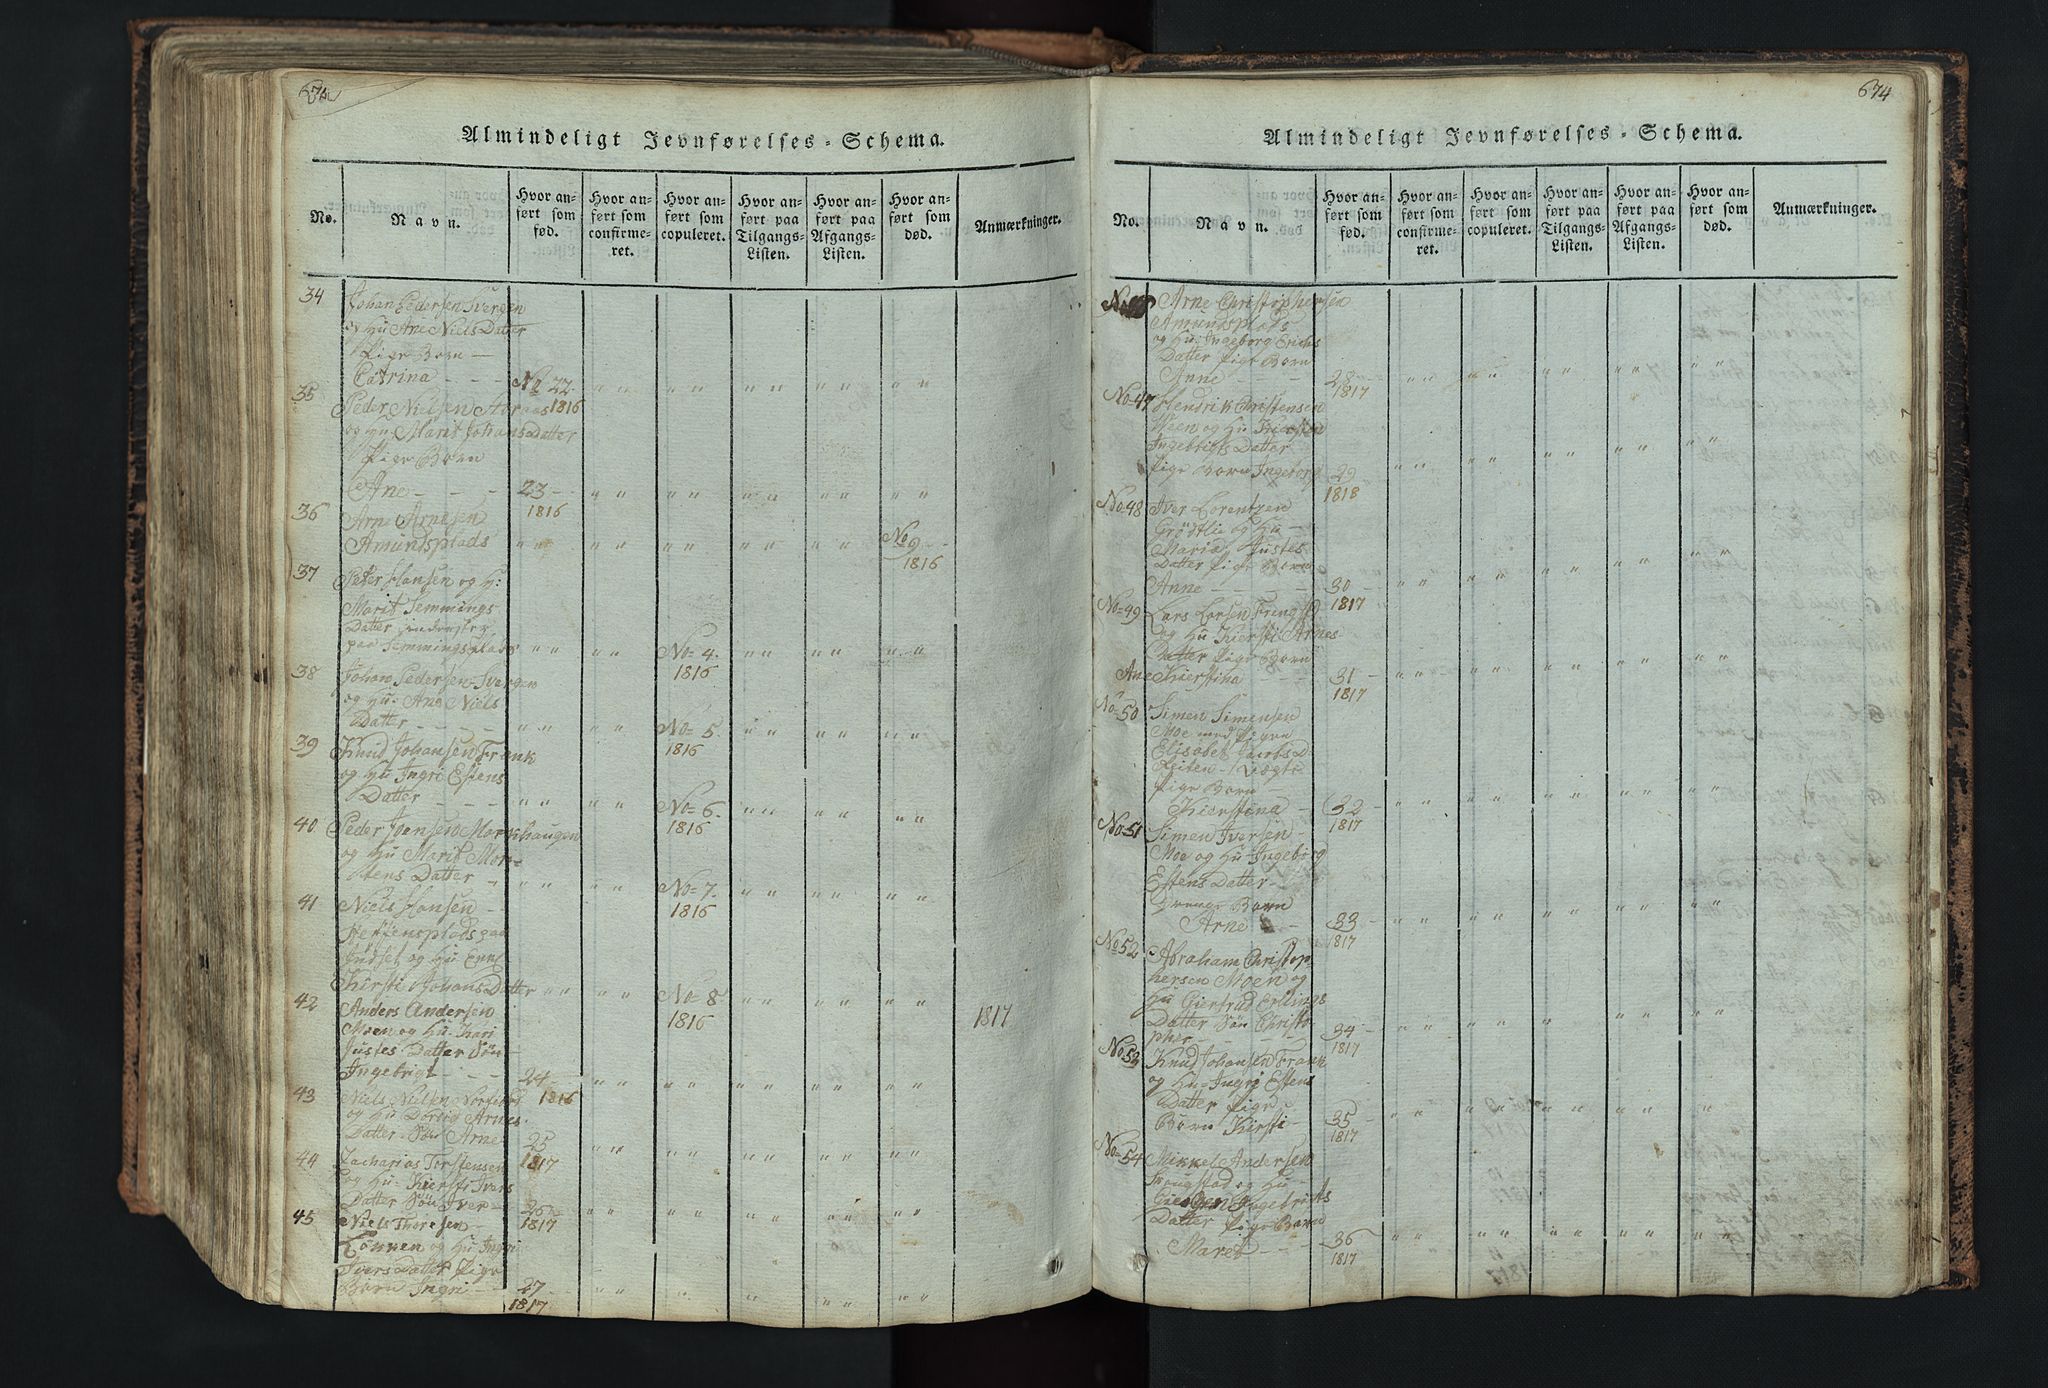 674
Almindeligt Jevnførelses-Schema.
No.
Navn.
Hvor anført som fød.
Hvor anført som confirmeret.
Hvor anført som copuleret.
Hvor anført paa Tilgangs-Listen.
Hvor anført paa Afgangs-Listen.
Hvor anført som død.
Anmærkninger.
34 Johan Pedersen Svergen
og Hu Ane Niels Datter
Pige Barn —
Catrina - - - No 22. " " " " " " " " " "
35 Peder Nielsen 1816
og Hu. Marit Johans Datter
Pige Barn
Ane - - - 23 - " " " " " " " " " "
1816
36 Arn Arnesen
Amundsplads " " " " " " " " " " No 9 -
1816
37 Peter Hansen og H:
Marit Semmings
Datter
paa Semmingsplads " " " " No= 4. " " " " " "
1816
38 Johan Pedersen Svergen
og Hu. Ane Niels
Datter - - " " " " No= 5. " " " " " "
1816
39 Knud Johansen Frank
og Hu Ingri Estens
Datter - - - " " " " No= 6. " " " " " "
1816
40 Peder Joensen
og Hu Marit Mor-
tens Datter - " " " " No= 7. " " " " " "
1816
41 Niels Hansen -
paa
Jndset og Hu Enni
Kirsti Johans Datter " " " " No= 8 " " " " " "
1816
1817
42 Anders Andersen
Moen og Hu. Kari
Justes Datter Søn
Ingebrigt - - - 24 - " " " " " " " " " "
1816
43 Niels Nielsen
og Hu Dortid Arnes
Datter Søn Arne 25 " " " " " " " " " "
1817
44 Zacharias Torstensen
og Hu. Kiersti Ivers
Datter Søn Iver - 26 " " " " " " " " " "
1817
45 Niels Thoresen -
Lønnen og Hu Ingri
Ivers Datter Pige
Barn Ingri - - 27 - " " " " " " " "
1817
674
Almindeligt Jevnførelses-Schema.
No.
Navn.
Hvor anført som fød.
Hvor anført som confirmeret.
Hvor anført som copuleret.
Hvor anført paa Tilgangs-Listen.
Hvor anført paa Afgangs-Listen.
Hvor anført som død.
Anmærkninger.
Arne Christophersen
Amundsplads
og Hu. Ingeborg Erichs
Datter Pige Barn
Anne - 28 - " " " " " " " " " "
1817
No=47 Hendrik Christensen
Moen og Hu Kiersten
Ingebrigts Datter
Pige Barn Ingeborg 29 " " " " " " " " " "
1818
No=48 Iver Lorentzen
Grødtlie og Hu -
Maria Justes
Datter Pige Barn
Anne - - - - 30 - " " " " " " " " " "
1817
No=49 Lars Larsen
og Hu Kiersti Arnes
Datter Pige Barn
Ane Kierstina - - - 31 - " " " " " " " " " "
1817
No=50 Simen Simensen
Moe med Pigen
Elisabet Jacobs D
Pige Barn
Kierstina - 32 - " " " " " " " " " "
1817
No=51 Simen Iversen -
Moe og Hu. Ingeborg
Estens Datter -
Drenge Barn
Arne - 33 - " " " " " " " " " "
1817
No52 Abraham Christop-
hersen Moen og
Hu Giertrud Erlings
Datter Søn Christo-
pher - - - - 34 - " " " " " " " " " "
1817
No=53 Knud Johansen Frank
og Hu. Ingri Estens
Datter Pige
Barn Kirsti - 35 - " " " " " " " " " "
1817
No=54 Mikkel Andersen
og Hu -
Ingebrigts
Datter Pige Barn
Maret - - - 36 " " " " " " " " " "
1817